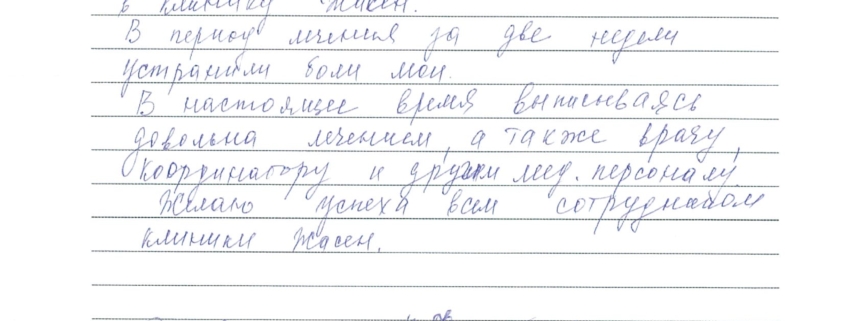 в клинику Жасен.
В период лечения за две недели
устранили боли мои.
В настоящее время выписываясь
довольна лечением, а также врачу,
координатору и другим мед. персоналу.
Желаю успеха всем сотрудникам
клиники Жасен.